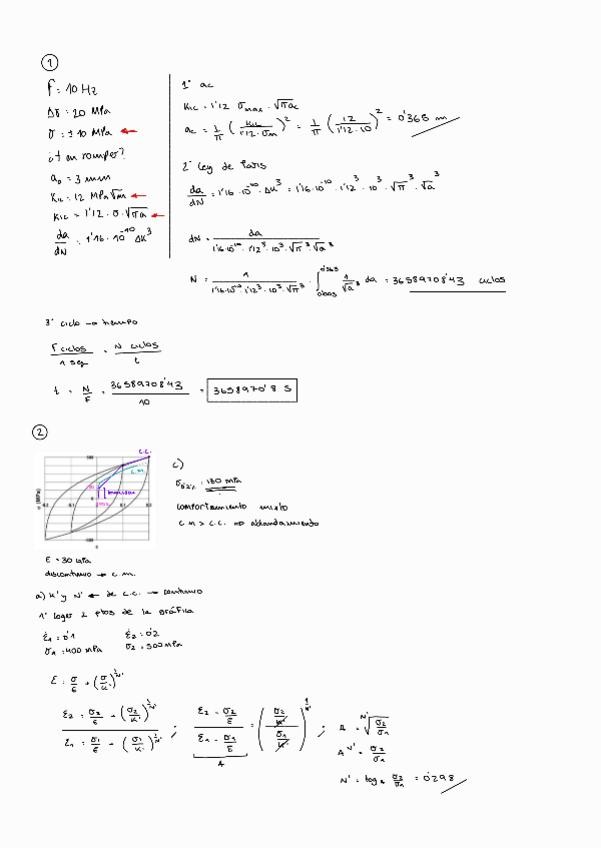 1
f = 10 Hz
Δσ = 20 MPa
σ = ±10 MPa
¿t en romper?
a₀ = 3 mm
K_IC = 12 MPa√m
K_IC = 1'12 · σ · √πa
da/dN = 1'16 · 10⁻¹⁰ ΔK³
1º ac
K_IC = 1'12 σmax · √πac
ac = 1/π (K_IC / 1'12 · σm)² = 1/π (12 / 1'12 · 10)² = 0'365 m
2º Ley de Paris
da/dN = 1'16 · 10⁻¹⁰ · ΔK³ = 1'16 · 10⁻¹⁰ · 1'12³ · 10³ · √π³ · √a³
dN = da / 1'16 · 10⁻¹⁰ · 1'12³ · 10³ · √π³ · √a³
N = 1 / 1'16 · 10⁻¹⁰ · 1'12³ · 10³ · √π³ · ∫ 0'003 0'365 1/√a³ da = 36589708'43 ciclos
3º ciclo → tiempo
F ciclos / 1 seg = N ciclos / t
t = N/F = 36589708'43 / 10 = 3658970'8 S
2
c.c.
c.m.
σ (MPa)
c)
comportamiento mixto
c.m > c.c. ⇒ ablandamiento
discontinuo → c.m.
a) K' y N' ← de c.c. → continuo
1º coger 2 ptos de la gráfica
ε₁ = 0'1 ε₂ = 0'2
σ₁ = 400 MPa σ₂ = 500 MPa
ε = σ/E + (σ/K')^(1/N')
ε₂ = σ₂/E + (σ₂/K')^(1/N') / ε₁ = σ₁/E + (σ₁/K')^(1/N') ; (ε₂ - σ₂/E) / (ε₁ - σ₁/E) = ((σ₂/K') / (σ₁/K'))^(1/N') ; A = ᴺ'√(σ₂/σ₁)
A
A^N' = σ₂/σ₁
N' = log_A σ₂/σ₁ = 0'298